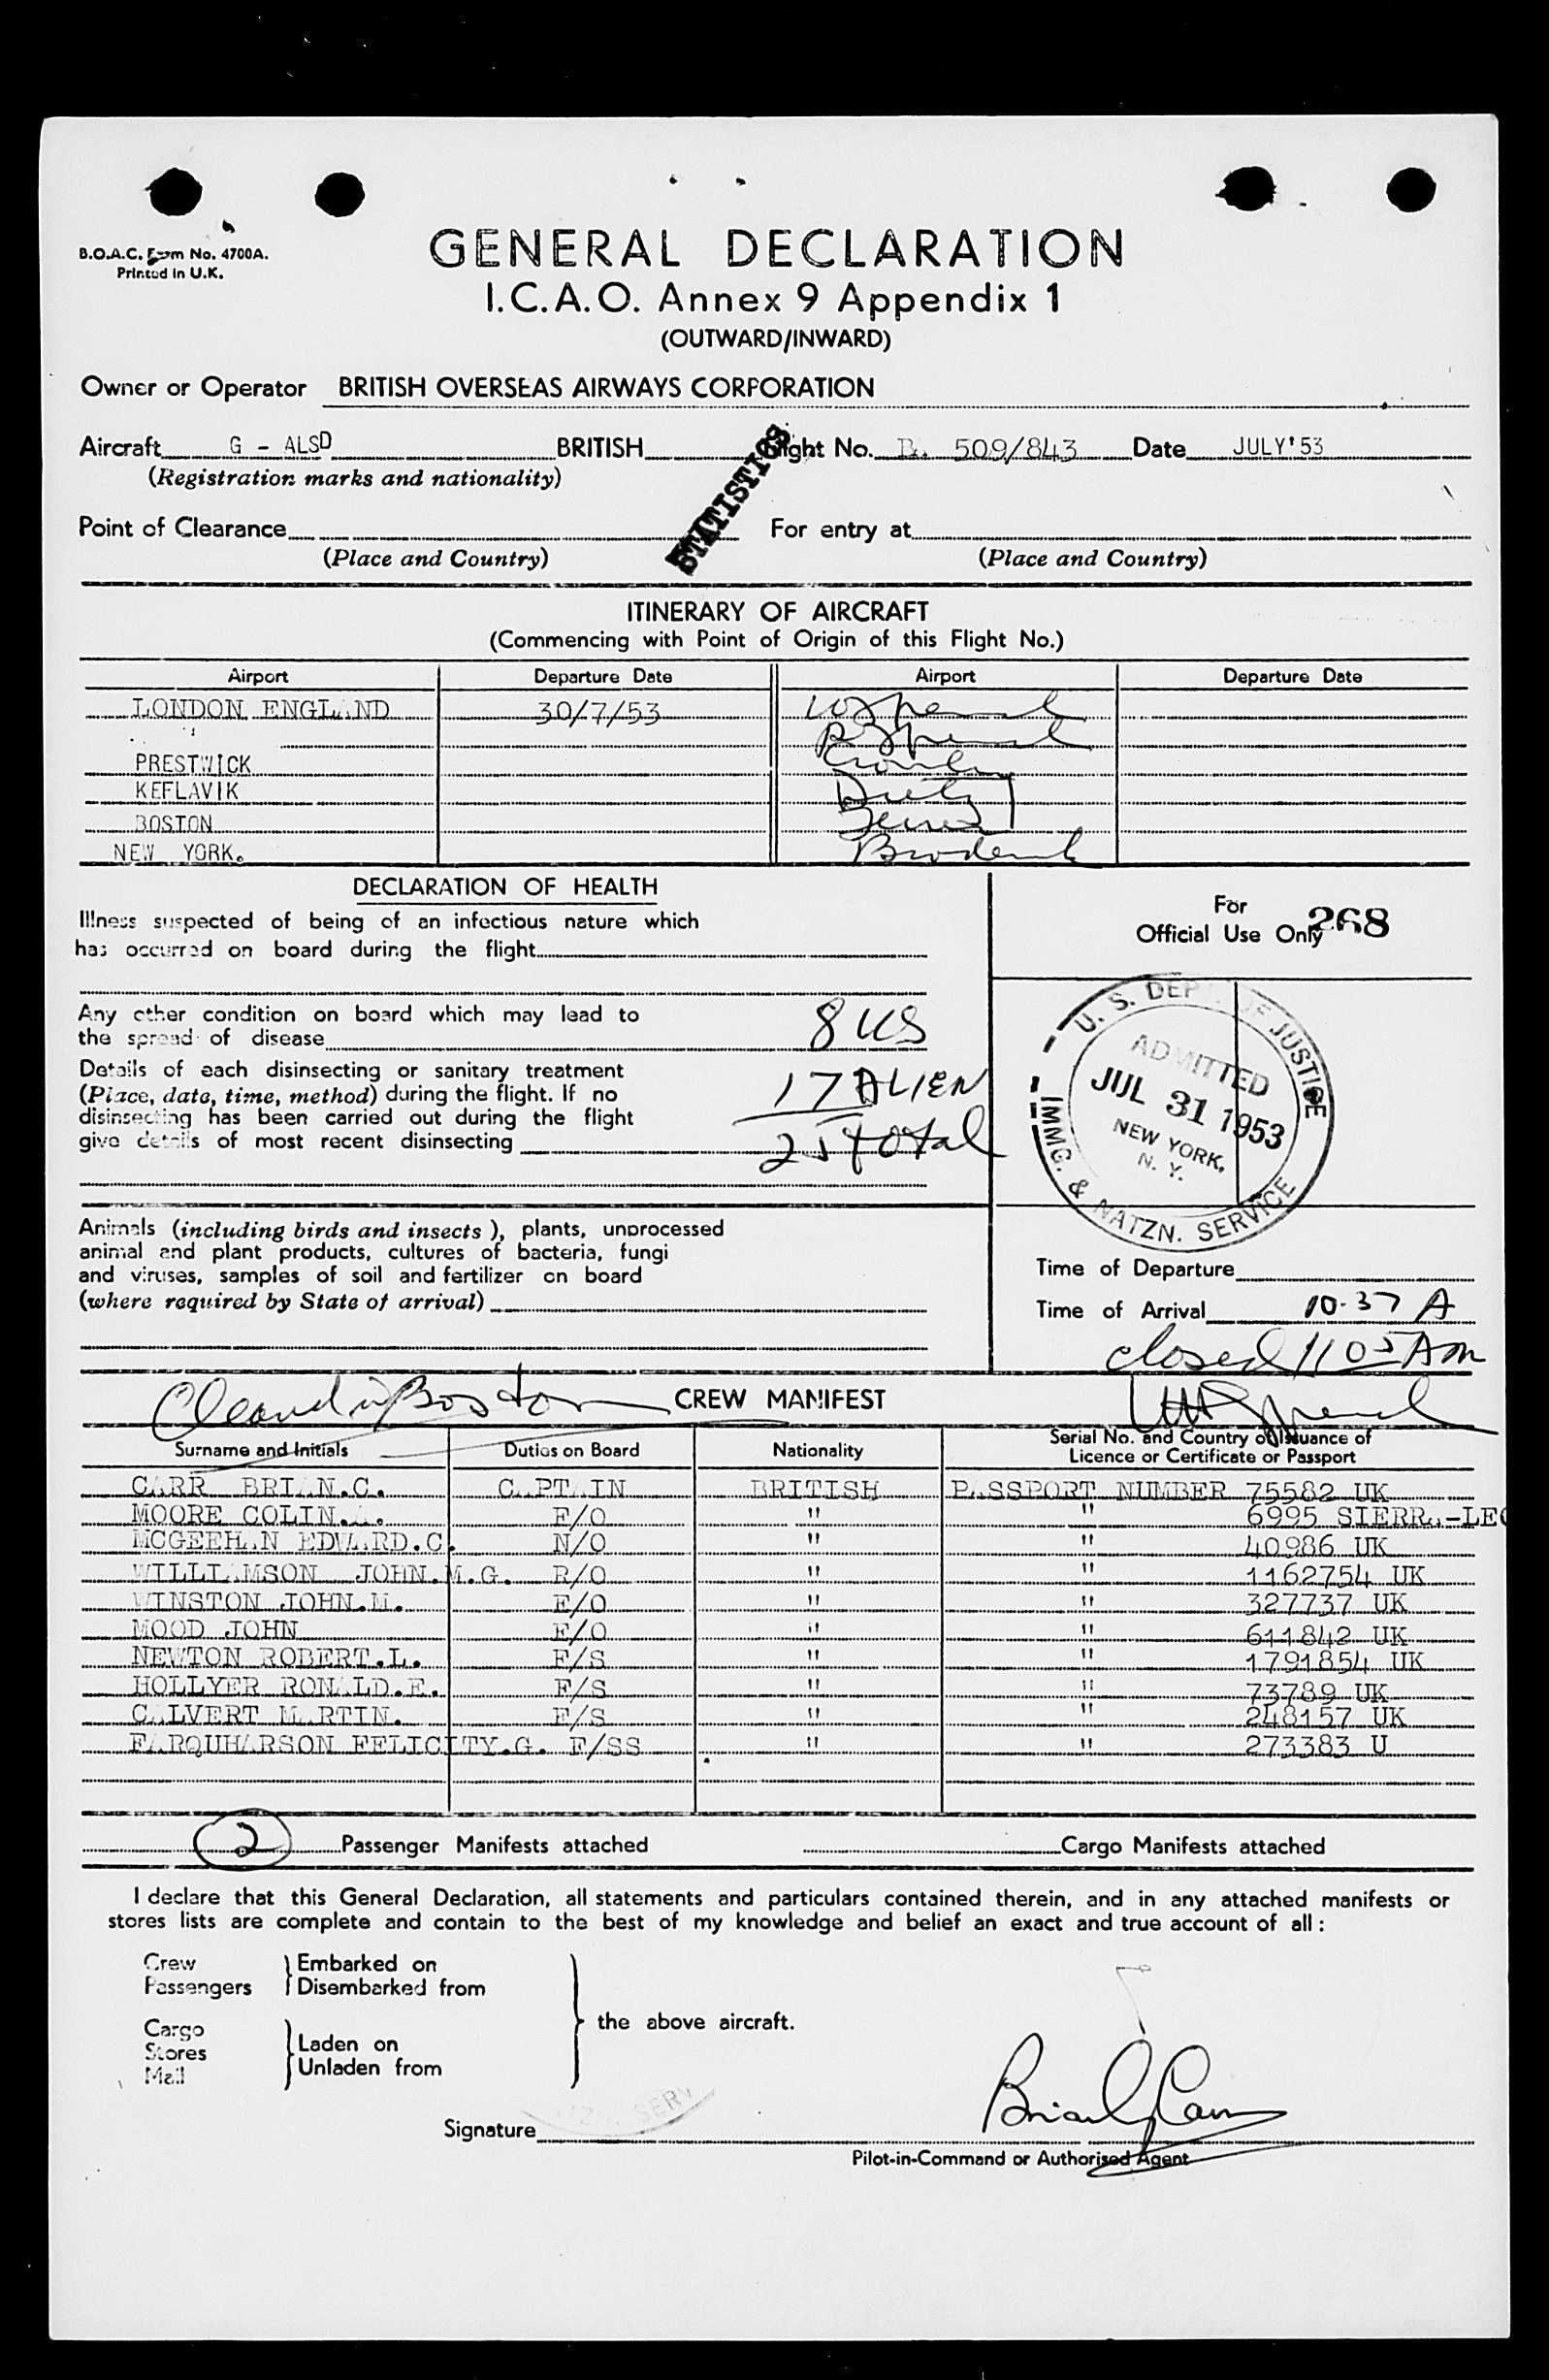 B.O.A.C. Form No. 4700A.
Printed in U.K.
GENERAL DECLARATION
I.C.A.O. Annex 9 Appendix 1
(OUTWARD/INWARD)
Owner or Operator BRITISH OVERSEAS AIRWAYS CORPORATION
Aircraft G - ALSD BRITISH Flight No. B. 509/843 Date JULY'53
(Registration marks and nationality)
STATISTICS
Point of Clearance For entry at
(Place and Country) (Place and Country)
ITINERARY OF AIRCRAFT
(Commencing with Point of Origin of this Flight No.)
Airport Departure Date Airport Departure Date
LONDON ENGLAND 30/7/53
PRESTWICK
KEFLAVIK
BOSTON
NEW YORK.
DECLARATION OF HEALTH
Illness suspected of being of an infectious nature which
has occurred on board during the flight
Any other condition on board which may lead to
the spread of disease
8 US
Details of each disinsecting or sanitary treatment
(Place, date, time, method) during the flight. If no
disinsecting has been carried out during the flight
give details of most recent disinsecting
17 ALIEN
25 total
For
Official Use Only
268
U. S. DEPT. OF JUSTICE
ADMITTED
JUL 31 1953
NEW YORK,
N. Y.
IMMG. & NATZN. SERVICE
Animals (including birds and insects), plants, unprocessed
animal and plant products, cultures of bacteria, fungi
and viruses, samples of soil and fertilizer on board
(where required by State of arrival)
Time of Departure
Time of Arrival 10.37 A
closed 11 05 Am
Boston
CREW MANIFEST
Surname and Initials Duties on Board Nationality Serial No. and Country of Issuance of
Licence or Certificate or Passport
CARR BRIAN.C. CAPTAIN BRITISH PASSPORT NUMBER 75582 UK
MOORE COLIN.A. F/O " " 6995 SIERRA-LEO
MCGEEHAN EDWARD.C. N/O " " 40986 UK
WILLIAMSON JOHN.M.G. R/O " " 1162754 UK
WINSTON JOHN.M. E/O " " 327737 UK
MOOD JOHN E/O " " 611842 UK
NEWTON ROBERT.L. F/S " " 1791854 UK
HOLLYER RONALD.E. F/S " " 73789 UK
CALVERT MARTIN. F/S " " 248157 UK
FARQUHARSON FELICITY.G. F/SS " " 273383 U
2 Passenger Manifests attached Cargo Manifests attached
I declare that this General Declaration, all statements and particulars contained therein, and in any attached manifests or
stores lists are complete and contain to the best of my knowledge and belief an exact and true account of all :
Crew Embarked on
Passengers Disembarked from
the above aircraft.
Cargo
Stores Laden on
Mail Unladen from
Signature
Pilot-in-Command or Authorised Agent